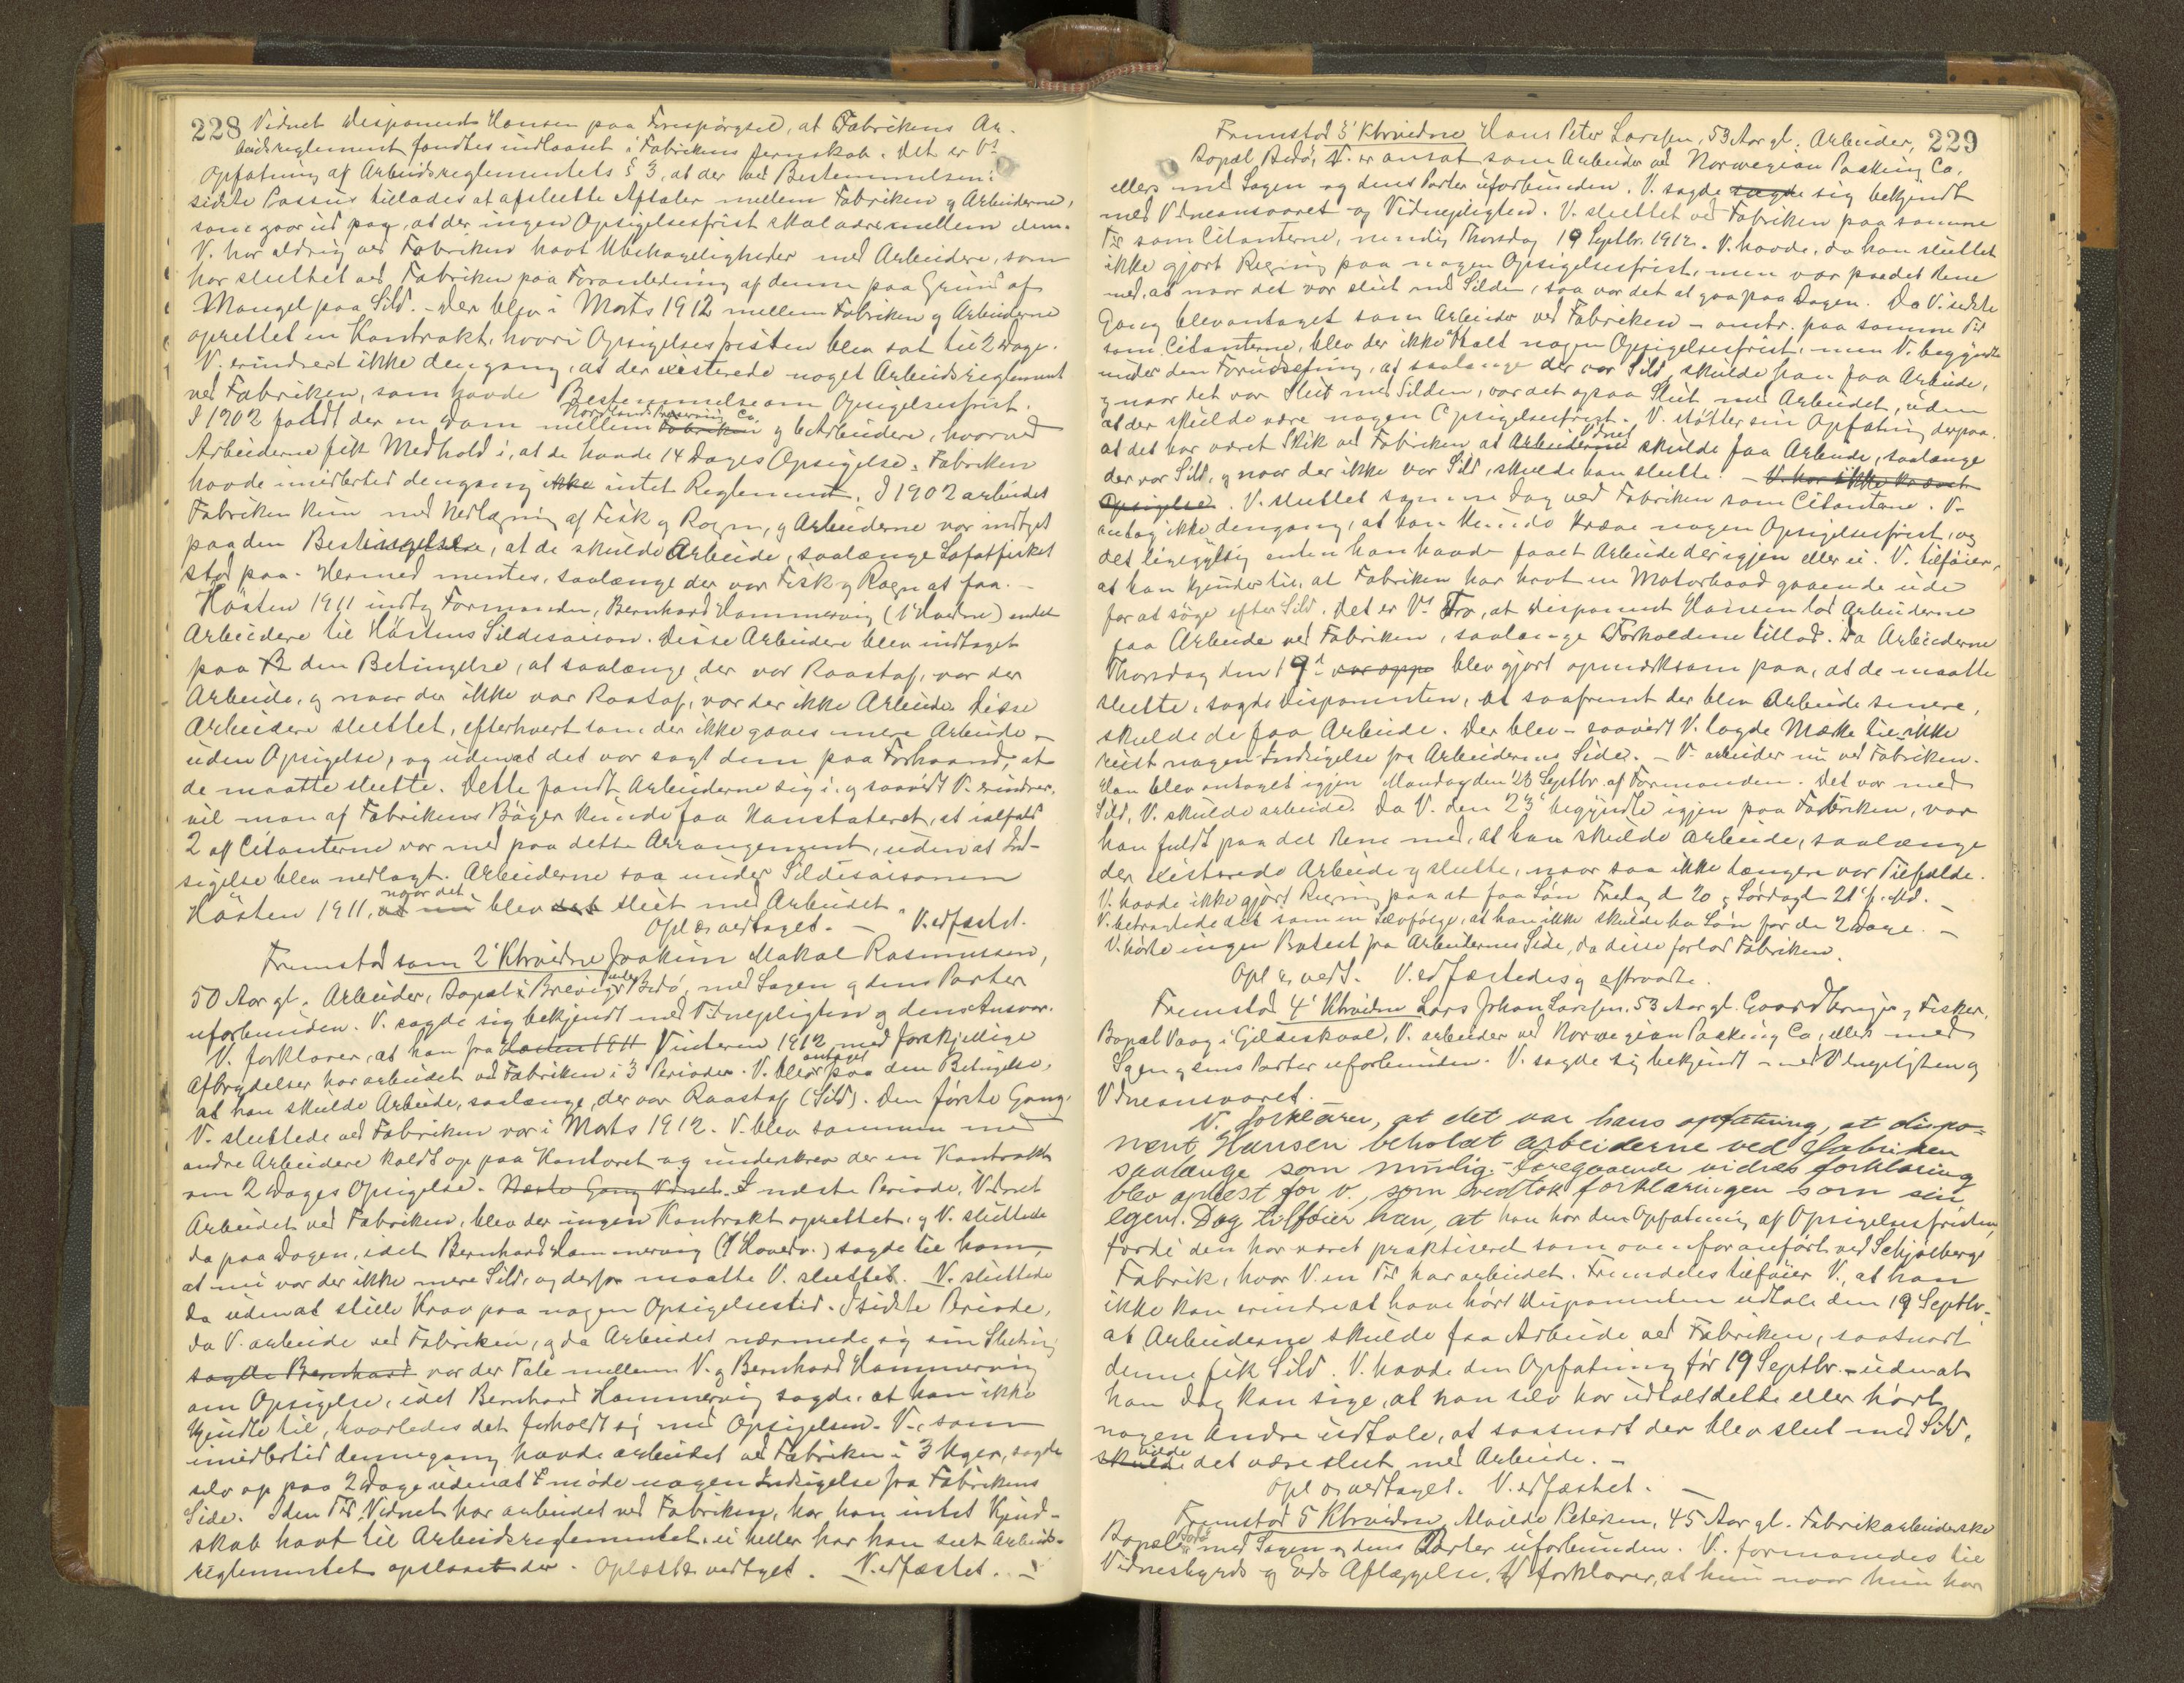 228 Vidnet Disponent Hansen paa Forespørgsel, at Fabrikens Ar-
beidsreglement fandtes indlaaset i Fabrikens Jernskab. Det er V's
Opfatning af Arbeidsreglementets § 3, at der ved Bestemmelsens
sidste Passus tillades at afslutte Aftaler mellem Fabriken og Arbeiderne,
som gaar ud paa, at der ingen Opsigelsesfrist skal være mellem dem.
V. har aldrig ved Fabriken havt Ubehageligheder med Arbeidere, som
har sluttet ved Fabriken paa Foranledning af denne paa Grund af
Mangel paa Sild. - Der blev i Marts 1912 mellem Fabriken og Arbeiderne
oprettet en Kontrakt, hvori Opsigelsesfristen blev sat til 2 Dage.
V. erindrert ikke dengang, at der existerede noget Arbeidsreglement
ved Fabriken, som havde Bestemmelse om Opsigelsesfrist.
I 1902 faldt der en Dom mellem Fabriken Nordlands Preserving Co. og 6 Arbeidere, hvorved
Arbeiderne fik Medhold i, at de havde 14 Dages Opsigelse. Fabriken
havde imidlertid dengang ikke intet Reglement. I 1902 arbeidet
Fabriken kun med Nedlægning af Fisk og Rogn, og Arbeiderne var indtaget
paa den Betingelse, at de skulde Arbeide, saalænge Lofotfisket
stod paa. Hermed mentes, saalænge der var Fisk og Rogn at faa. -
Høsten 1911 indtog Formanden, Bernhard Hammervig (1' Hvidne) endel
Arbeidere til Høstens Sildesaison. Disse Arbeidere blev indtaget
paa den Betingelse, at saalænge der var Raastof, var der
Arbeide, og naar der ikke var Raastof, var der ikke Arbeide. Disse
Arbeidere sluttet, efterhvert som der ikke gaves mere Arbeide -
uden Opsigelse, og uden at det var sagt dem paa Forhaand, at
de maatte slutte. Dette fandt Arbeiderne sig i, og saavidt V. erindrer,
vil man af Fabrikens Bøger kunde faa Konstateret, at ialfald
2 af Citanterne var med paa dette Arrangement, uden at Ind-
sigelse blev nedlagt. Arbeiderne saa under Sildesaisonen
Høsten 1911, at nu naar det blev det slut med Arbeidet.
Opl. og vedtaget. - V. edfæstet.
Fremstod som 2' Ktrvidne Joakim Makal Rasmussen,
50 Aar gl. Arbeider, Bopæl Brevig under Bodø, med Sagen og dens Parter
uforbunden. V. sagde sig bekjendt med Vidnepligten og dens Ansvar.
V. forklarer, at han fra Høsten 1911 Vinteren 1912 med forskjellige
Afbrydelser har arbeidet ved Fabriken i 3 Perioder. V. blev antaget paa den Betingelse,
at han skulde Arbeide, saalænge der var Raastof (Sild). Den første Gang
V. sluttede ved Fabriken var i Marts 1912. V. blev sammen med
andre Arbeidere kaldt op paa Kontoret og underskrev der en Kontrakt
om 2 Dages Opsigelse. Næste Gang Vidnet. I næste Periode, Vidnet
Arbeidet ved Fabriken, blev der ingen Kontrakt oprettet, og V. sluttede
da paa Dagen, idet Bernhard Hammervig (1' Hovedv.) sagde til ham,
at nu var der ikke mere Sild, og derfor maatte V. slutte. V. sluttede
da uden at stille Krav paa nogen Opsigelsestid. I sidste Periode,
da V. arbeide ved Fabriken, og da Arbeidet nærmede sig sin Slutning
sagde Bernhard var der Tale mellem V. og Bernhard Hammervig
om Opsigelse, idet Bernhard Hammervig sagde, at han ikke
kjendte til, hvorledes det forholdt sig med Opsigelsen. V., som
imidlertid dennegang havde arbeidet ved Fabriken i 3 Uger, sagde
selv op paa 2 Dage uden at møde nogen Indsigelse fra Fabrikens
Side. I den Tid, Vidnet har arbeidet ved Fabriken, har han intet Kjend-
skab havt til Arbeidsreglementet, ei heller har han seet Arbeids-
reglementet opslaaet der. Oplæst og vedtaget. V. edfæstet. -
Fremstod 3' Ktrvidne Hans Peter Larssen, 53 Aar gl. Arbeider, 229
Bopæl Bodø, V. er ansat som Arbeider ved Norwegian Packing Co.
ellers med Sagen og dens Parter uforbunden. V. sagde sagde sig bekjendt
med Vidneansvaret og Vidnepligten. V. sluttet ved Fabriken paa samme
Tid som Citanterne, nemlig Thorsdag 19 Septbr. 1912. V. havde, da han sluttet
ikke gjort Regning paa nogen Opsigelsesfrist, men var paa det Rene
med, at naar det var slut med Silden, saa var det at gaa paa Dagen. Da V. sidste
Gang blev antaget som Arbeider ved Fabriken - omtr. paa samme Tid
som Citanterne, blev der ikke aftalt nogen Opsigelsesfrist, men V. begyndte
under den Forudsætning, at saalænge der var Sild, skulde han faa Arbeide,
og naar det var Slut med Silden, var det ogsaa Slut med Arbeidet, uden
at der skulde være nogen Opsigelsesfrist. V. støtter sin Opfatning derpaa,
at det har været Skik ved Fabriken at Arbeiderne Vidnet skulde faa Arbeide, saalænge
der var Sild, og naar der ikke var Sild, skulde han slutte. - V. har ikke krævet
Opsigelse. V. sluttet samme Dag ved Fabriken som Citanterne. V.
antog ikke dengang, at han kunde kræve nogen Opsigelsesfrist, og
det ligegyldig enten han havde faaet Arbeide der igjen eller ei. V. tilføier,
at han kjender til, at Fabriken har havt en Motorbaad gaaende ude
for at søge efter Sild. Det er V's Tro, at Disponent Hansen lod Arbeiderne
faa Arbeide ved Fabriken, saalænge Forholdene tillod. Da Arbeiderne
Thorsdag den 19' var oppe blev gjort opmærksom paa, at de maatte
slutte, sagde Disponenten, at saafremt der blev Arbeide senere,
skulde de faa Arbeide. Der blev - saavidt V. lagde Mærke til - ikke
reist nogen Indsigelse fra Arbeidernes Side. - V. arbeider nu ved Fabriken.
Han blev antaget igjen Mandag den 23 Septbr. af Formanden. Det var med
Sild, V. skulde arbeide. Da V. den 23' begyndte igjen paa Fabriken, var
han fuldt paa det Rene med, at han skulde arbeide, saalænge
der existerede Arbeide og slutte, naar saa ikke længere var Tilfælde.
V. havde ikke gjort Regning paa at faa Løn Fredag d 20 og Lørdag d 21' s. Md. -
V. betragtede det som en Selvfølge, at han ikke skulde ha Løn for de 2 Dage. -
V. hørte ingen Protest fra Arbeidernes Side, da disse forlod Fabriken.
Opl. og vedt. V. edfæstedes og aftraadte.
Fremstod 4' Ktrvidne Lars Johan Larssen, 53 Aar gl. Gaardbruger og Fisker,
Bopæl Vaag i Gildeskaal, V. arbeider ved Norwegian Packing Co, ellers med
Sagen og dens Parter uforbunden. V. sagde sig bekjendt med Vidnepligten og
Vidneansvaret.
V. forklarer, at det var hans opfatning, at dispo-
nent Hansen beholdt arbeiderne ved Fabriken
saalænge som mulig. - Foregaaende vidnes forklaring
blev oplæst for v., som vedtok forklaringen som sin
egen. Dog tilføier han, at han har den Opfatning af Opsigelsesfristen,
fordi den har været praktiseret som ovenfor anført ved Schjølbergs
Fabrik, hvor V. en Tid har arbeidet. Fremdeles tilføier V., at han
ikke kan erindre at have hørt Disponenten udtale den 19 Septbr.
at Arbeiderne skulde faa Arbeide ved Fabriken, saasnart
denne fik Sild. V. havde den Opfatning før 19 Septbr. - uden at
han dog kan sige, at han selv har udtalt dette eller hørt
nogen Andre udtale, at saasnart der blev slut med Sild,
skulde vilde det være slut med Arbeide. -
Opl. og vedtaget. V. edfæstet. -
Fremstod 5 Ktrvidne, Alvilde Petersen, 45 Aar gl. Fabrikarbeiderske
Bopæl Bodø med Sagen og dens Parter uforbunden. V. formanedes til
Vidnesbyrds og Eds Aflæggelse. V. forklarer, at hun naar hun har